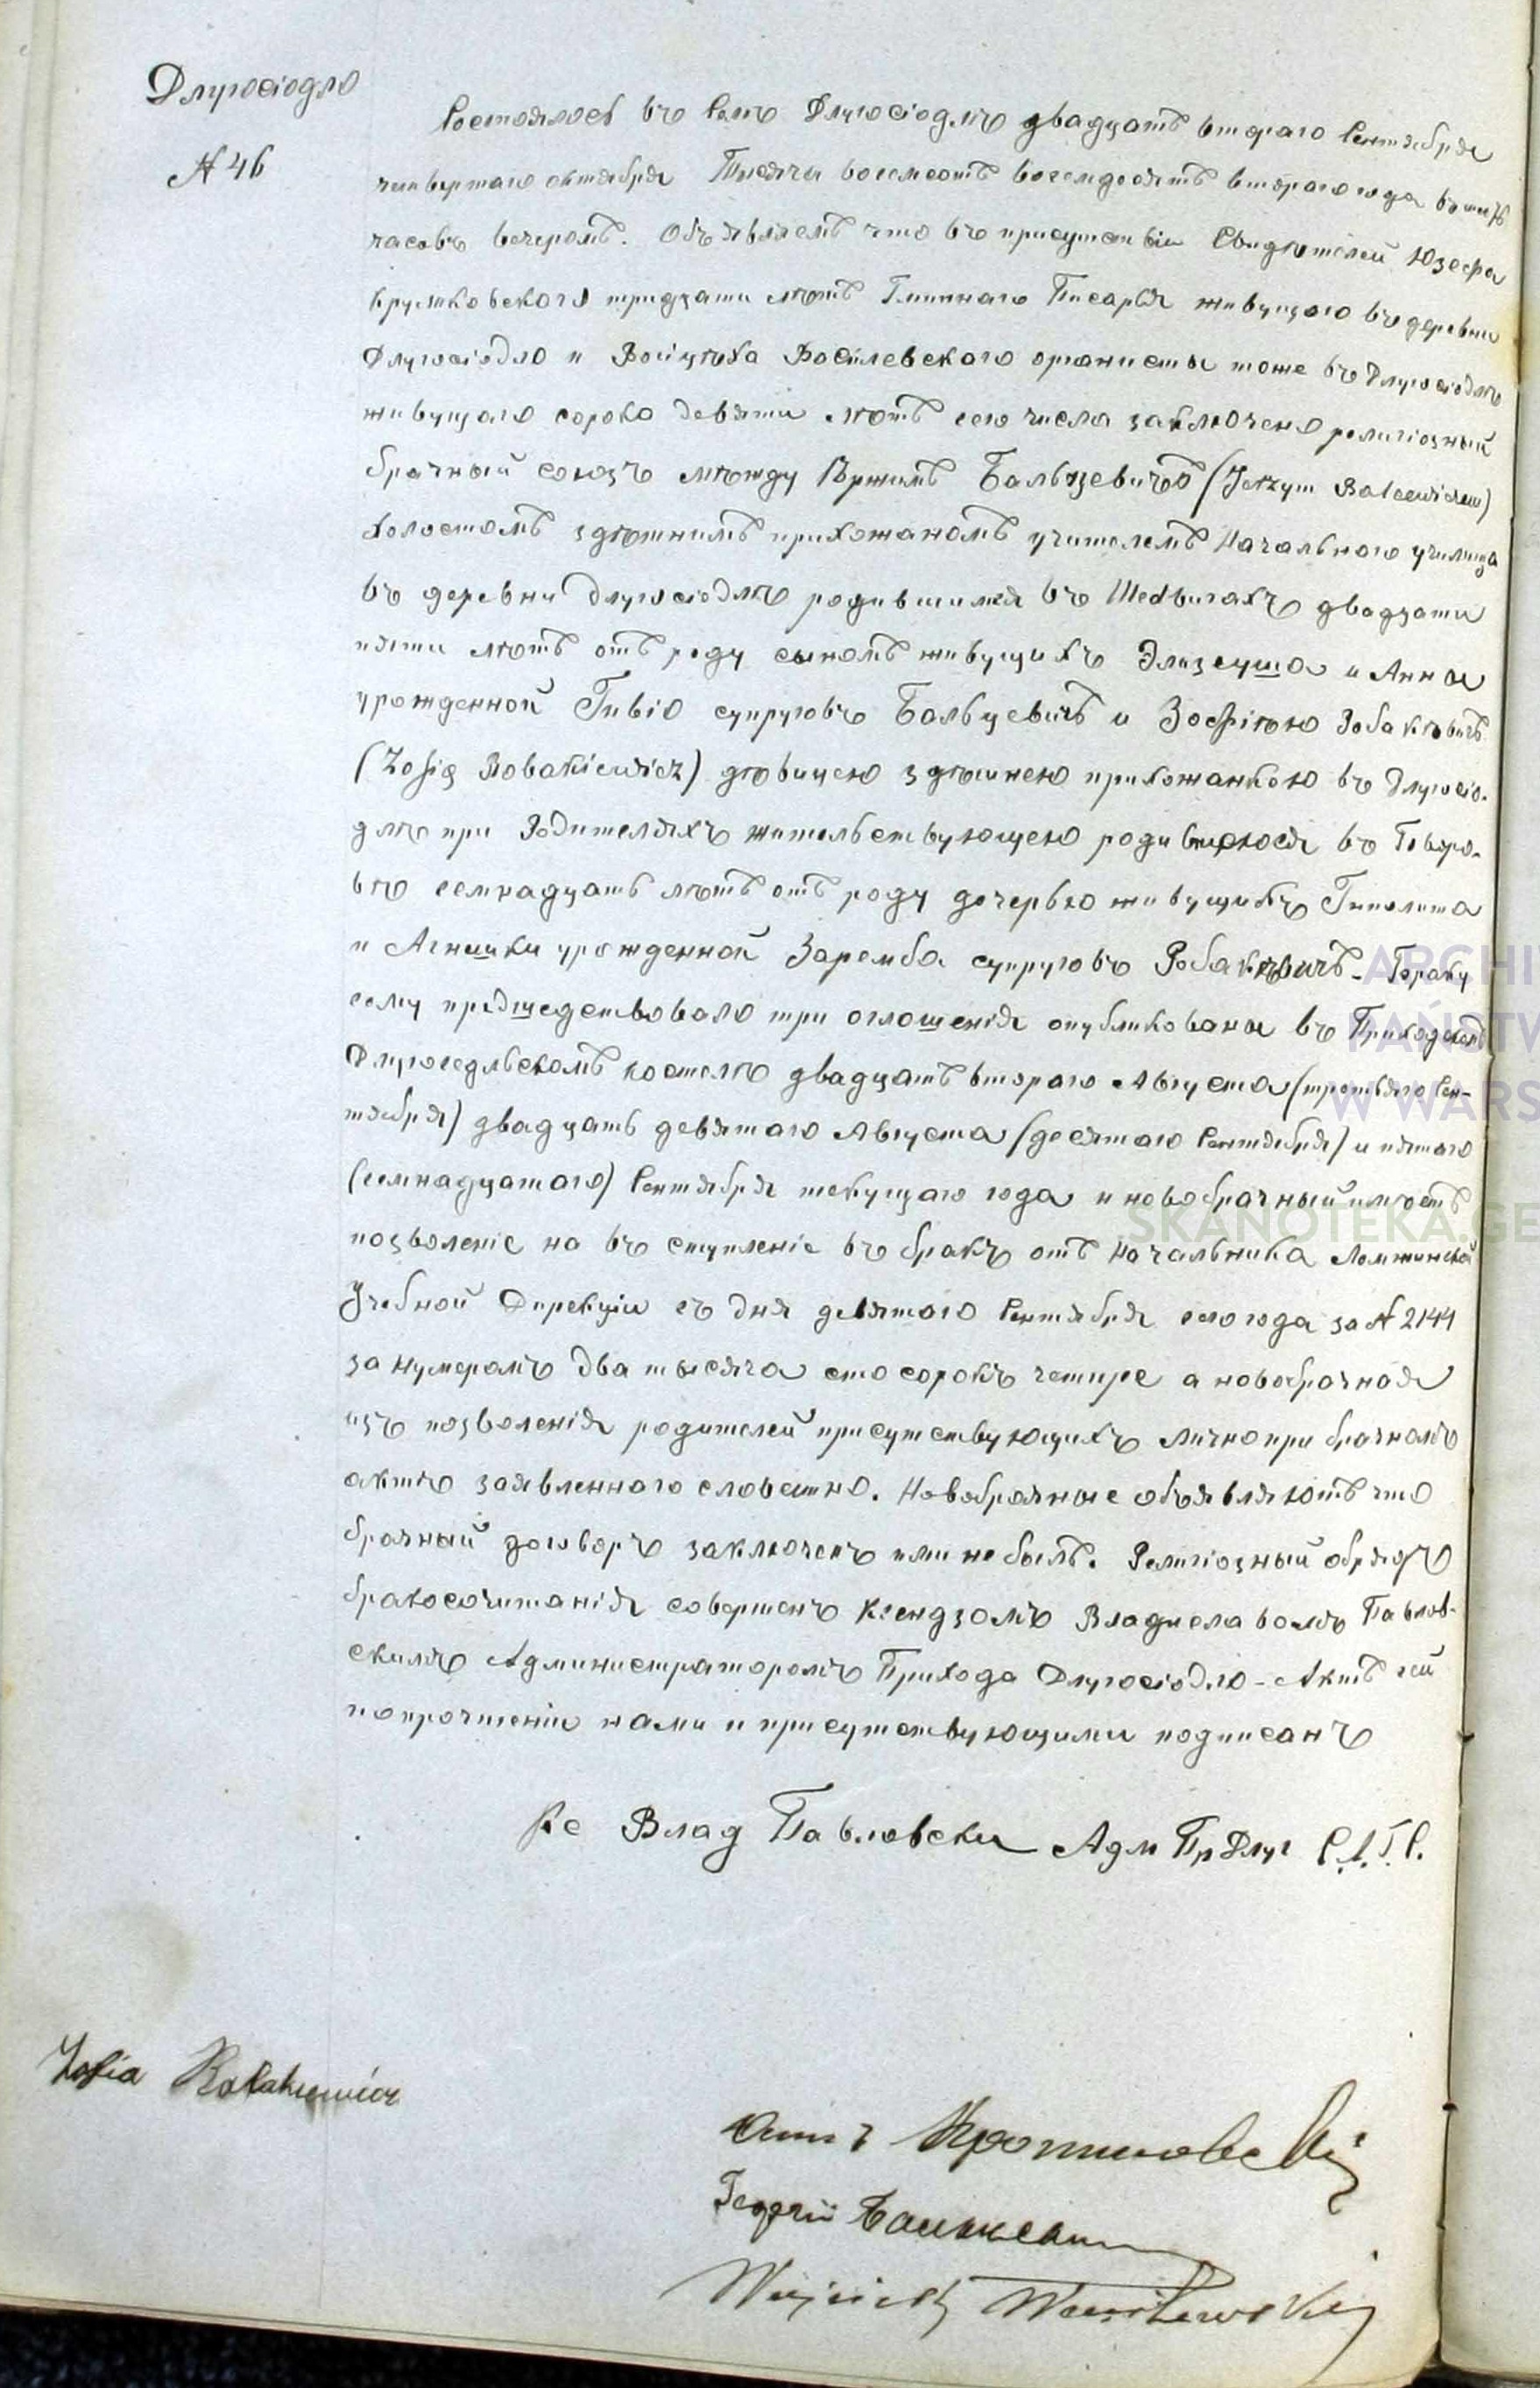 Длугосіодло
N 46
Состоялось въ селѣ Длугосіодлѣ двадцать втораго Сентября
четвертаго октября Тысяча восемсотъ восемдесятъ втораго года въ шесть
часовъ вечеромъ. Объявляемъ что въ присутствіи Свидѣтелей Юзефа
тридзати лѣтъ Гминнаго Писаря живущаго въ деревни
Длугосіодло и Войцѣха Восилевского органисты тоже въ Длугосіодлѣ
живущаго сорокъ девяти лѣтъ сего числа заключено религіозный
брачный союзъ между Ержимъ Бальцевичъ (Jerzym Balcewiczem)
холостомъ здѣшнимъ прихожаномъ учителемъ Начального училища
въ деревни Длугосіодлѣ родившимся въ двадзати
пяти лѣтъ отъ роду сыномъ живущихъ Элизеуша и Анны
урожденной супруговъ Бальцевичъ и Зофіею Робакѣвичъ
(Zofią Robakiewicz) дѣвицею здѣшнею прихожанкою въ Длугосіо-
длѣ при Родителяхъ жительствующею родившеюся въ Говоро-
вѣ семнадцать лѣтъ отъ роду дочерью живущихъ Гиполита
и Агнишки урожденной Заремба супруговъ Робакѣвичъ - Браку
сему предшедствовало три оглошенія опубликованы въ Приходскомъ
Длугоседльскомъ костелѣ двадцать втораго Августа (третьяго Сен-
тября) двадцать девятаго Августа (десятаго Сентября) и пятаго
(семнадцатаго) Сентября текущаго года и новобрачный имѣетъ
позволеніе на въ ступленіе въ бракъ отъ Начальника Ломжинской
Учебной Дирекціи съ дня девятаго Сентября сего года за N 2144
за нумеромъ два тысяча сто сорокъ четире а новобрачная
изъ позволенія родителей присутствующихъ лично при брачномъ
актѣ заявленного словестно. Новобрачные объявляютъ что
брачный договоръ заключенъ ими не былъ. Религіозный обрядъ
бракосочитанія совершенъ Ксендзомъ Владиславомъ Павлов-
скимъ Администраторомъ Прихода Длугосіодло - Актъ сей
по прочтеніи нами и присутствующими подписанъ
Кс Влад Павловски Адм Пр Длуг С.А.Г.С.
Zofia Robakiewicz
Георгій Бальцевич
Wojciech Wasilewski
ARCHI
PAŃSTW
W WARS
SKANOTEKA.GE